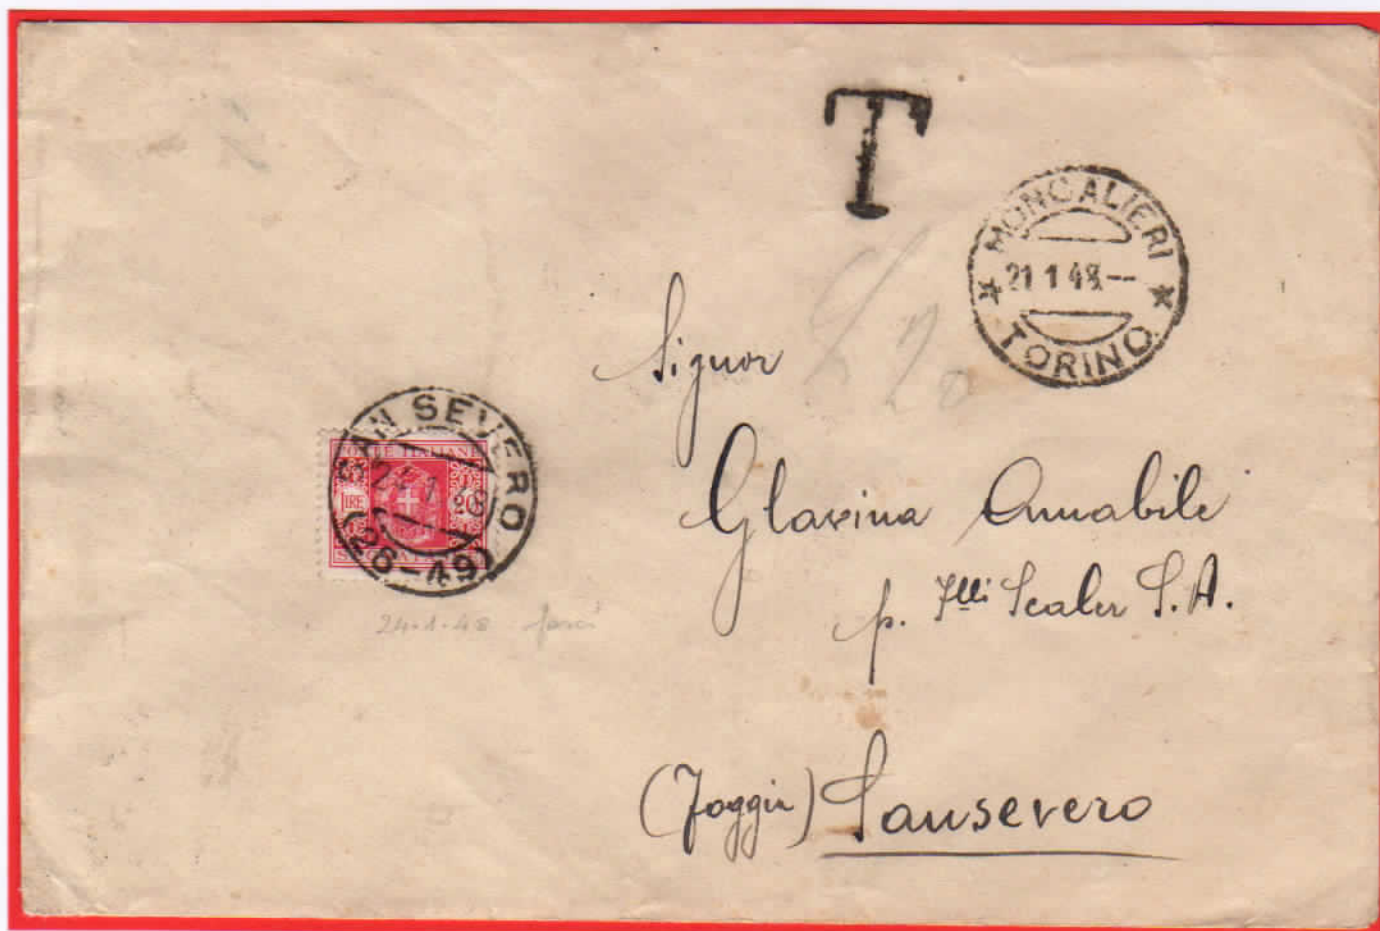 T
MONCALIERI
21 1 48.--
TORINO
£ 20
Signor
Glavina Amabile
p. Flli Scaler S.A.
(Foggia) Sansevero
SAN SEVERO
24 1 48
(26-49)
POSTE ITALIANE
LIRE 20
24.1.48